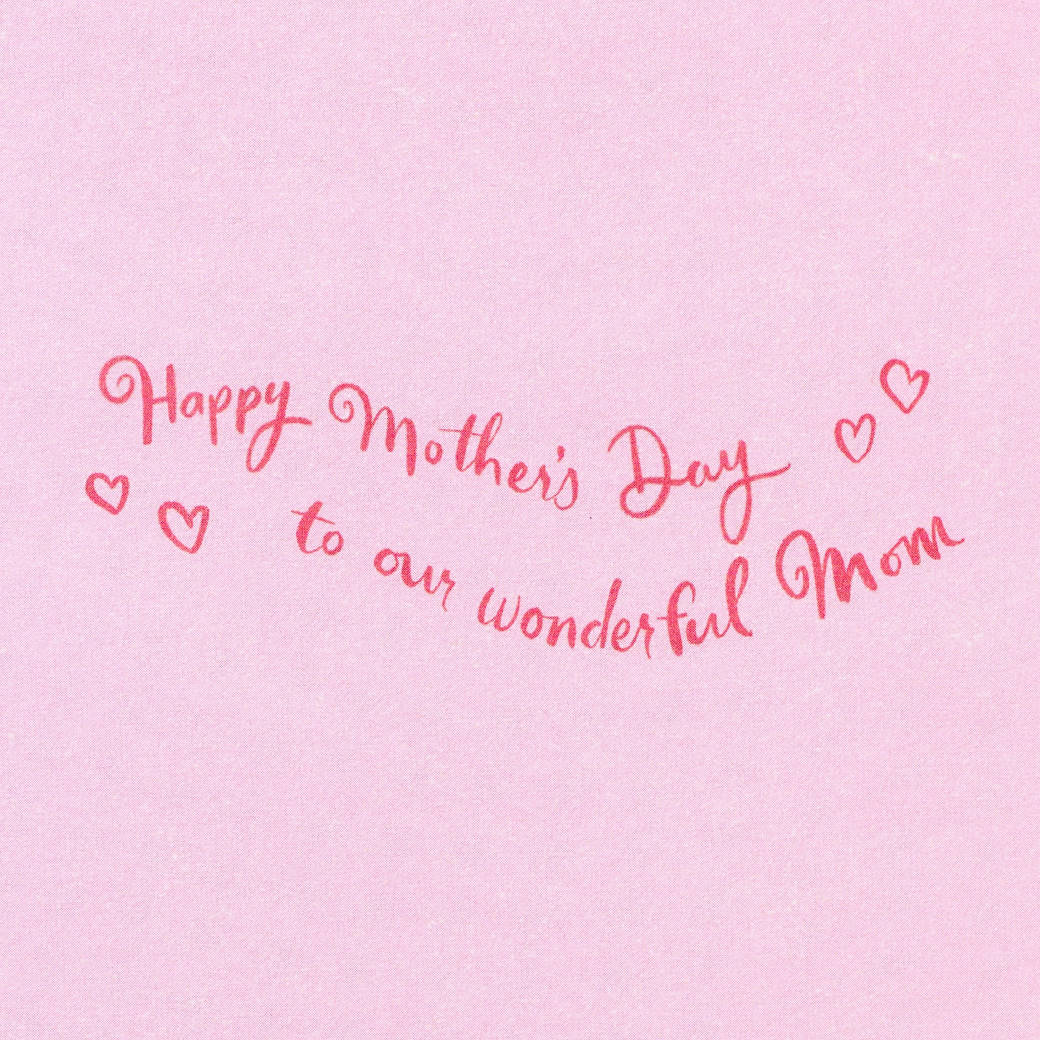 Happy Mother's Day
to our wonderful Mom